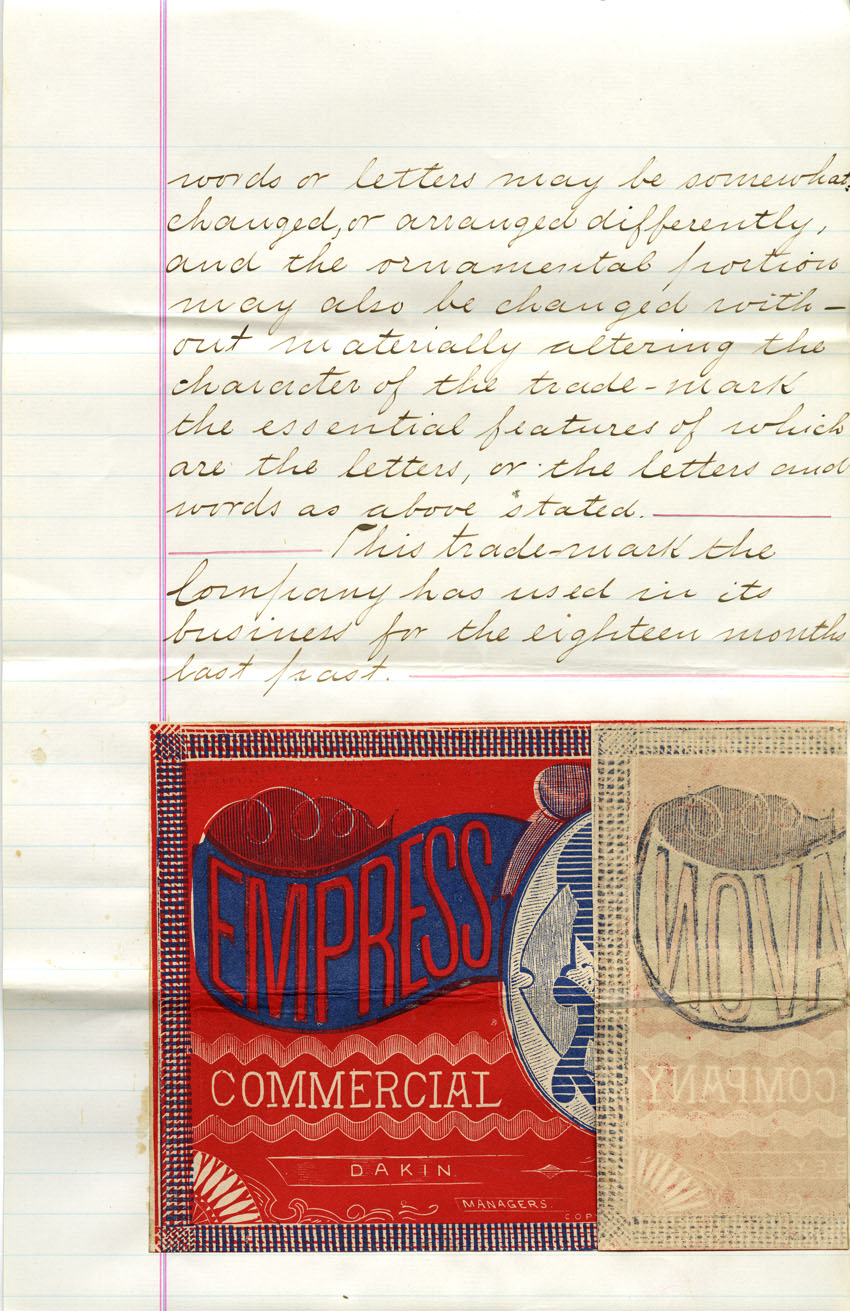 words or letters may be somewhat
changed, or arranged differently,
and the ornamental portion
may also be changed with-
out materially altering the
character of the trade-mark
the essential features of which
are the letters, or the letters and
words as above stated.
This trade-mark the
Company has used in its
business for the eighteen months
last past.
EMPRESS
NOVA
COMMERCIAL
COMPANY
DAKIN
MANAGERS
COP